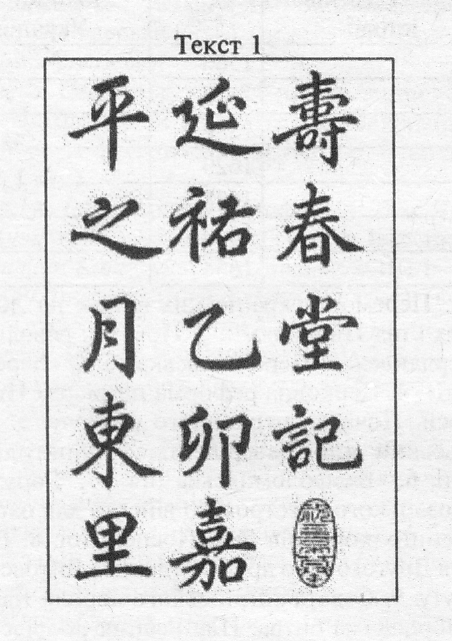 Текст 1
壽春堂記
延祐乙卯嘉
平之月東里